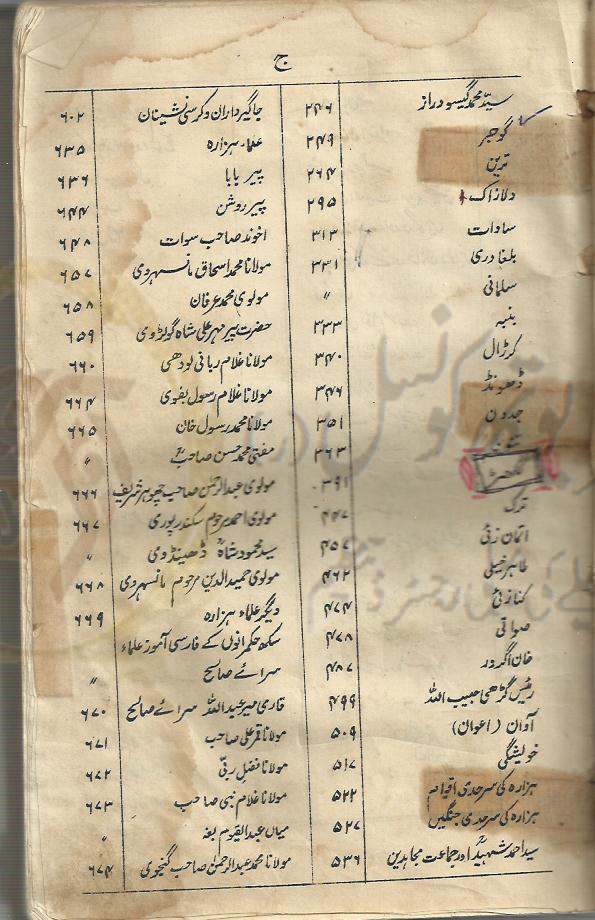 ج
سیّد محمد گیسودراز ۲۴۶
گوجر ۲۴۹
ترین ۲۶۴
دلازاک ۲۹۵
سادات ۳۱۳
بلغادری ۳۳۱
سلمانی 〃
بنبہ ۳۳۳
کرڑال ۳۴۰
ڈھونڈ ۳۴۶
جدون ۳۵۱
۳۶۳
گکھڑ ۳۹۱
ترک ۴۴۷
اتمان زئی ۴۵۷
طاہر خیلی ۴۶۲
کنازئی ۴۷۴
صواتی ۴۷۸
خان اگرور ۴۸۷
رئیس گڑھی حبیب اللہ ۴۹۹
آوان (اعوان) ۵۰۹
خویشگی ۵۱۷
ہزارہ کی سرحدی اقوام ۵۲۲
ہزارہ کی سرحدی جنگیں ۵۲۷
سید احمد شہیدؒ اور جماعت مجاہدین ۵۳۶
جاگیرداران و کرسی نشینان ۶۰۲
علماء ہزارہ ۶۳۵
پیر بابا ۶۳۶
پیر روشن ۶۴۴
اخوند صاحب سوات ۶۴۸
مولانا محمد اسحاق مانسہروی ۶۵۷
مولوی محمد عرفان ۶۵۸
حضرت پیر مہر علی شاہ گولڑوی ۶۵۹
مولانا غلام ربانی لودھی ۶۶۰
مولانا غلام رسول بفوی ۶۶۴
مولانا محمد رسول خان ۶۶۵
مفتی محمد حسن صاحبؒ 〃
مولوی عبدالرحمٰن صاحب چھوہر شریف ۶۶۶
مولوی احمد مرحوم سکندرپوری ۶۶۷
سید محمود شاہؒ ڈھینڈوی 〃
مولوی حمید الدین مرحوم مانسہروی ۶۶۸
دیگر علماء ہزارہ ۶۶۹
سکھ حکمرانوں کے فارسی آموز علماء
سرائے صالح 〃
قاری میر عبداللہ سرائے صالح ۶۷۰
مولانا قمر علی صاحب ۶۷۱
مولانا فضل ربّی ۶۷۲
مولانا غلام نبی صاحب ۶۷۳
میاں عبدالقیوم بفہ 〃
مولانا محمد عبدالرحمٰن صاحب گنجوی ۶۷۴